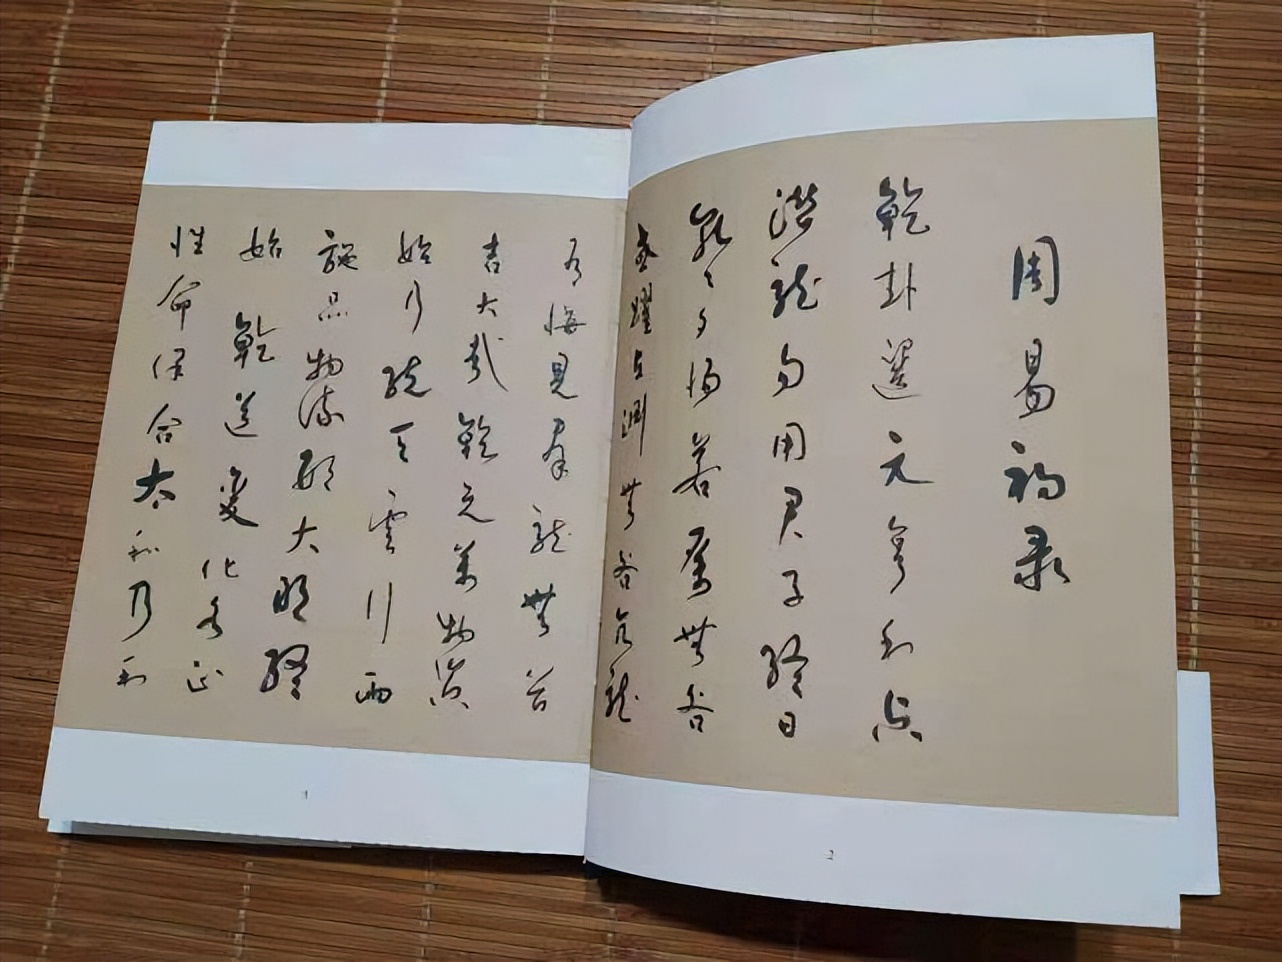 周易录
乾卦選元亨利貞
潛龍勿用君子終日
乾〻夕惕若厲無咎
或躍在淵無咎亢龍
有悔見羣龍無首
吉大哉乾元萬物資
始乃統天雲行雨
施品物流形大明終
始乾道變化各正
性命保合太和乃利
2
1